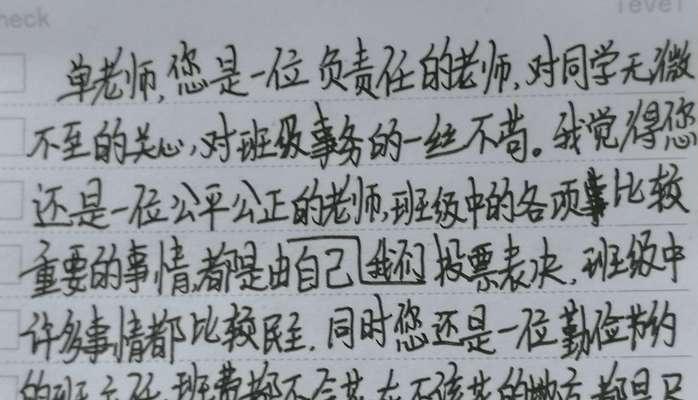 heck
level
单老师,您是一位负责任的老师,对同学无微
不至的关心,对班级事务的一丝不苟。我觉得您
还是一位公平公正的老师,班级中的各项事比较
重要的事情,都是由自己我们投票表决,班级中
许多事情都比较民主,同时您还是一位勤俭节约
的班主任,班费都不会花在不该花的地方,都是只